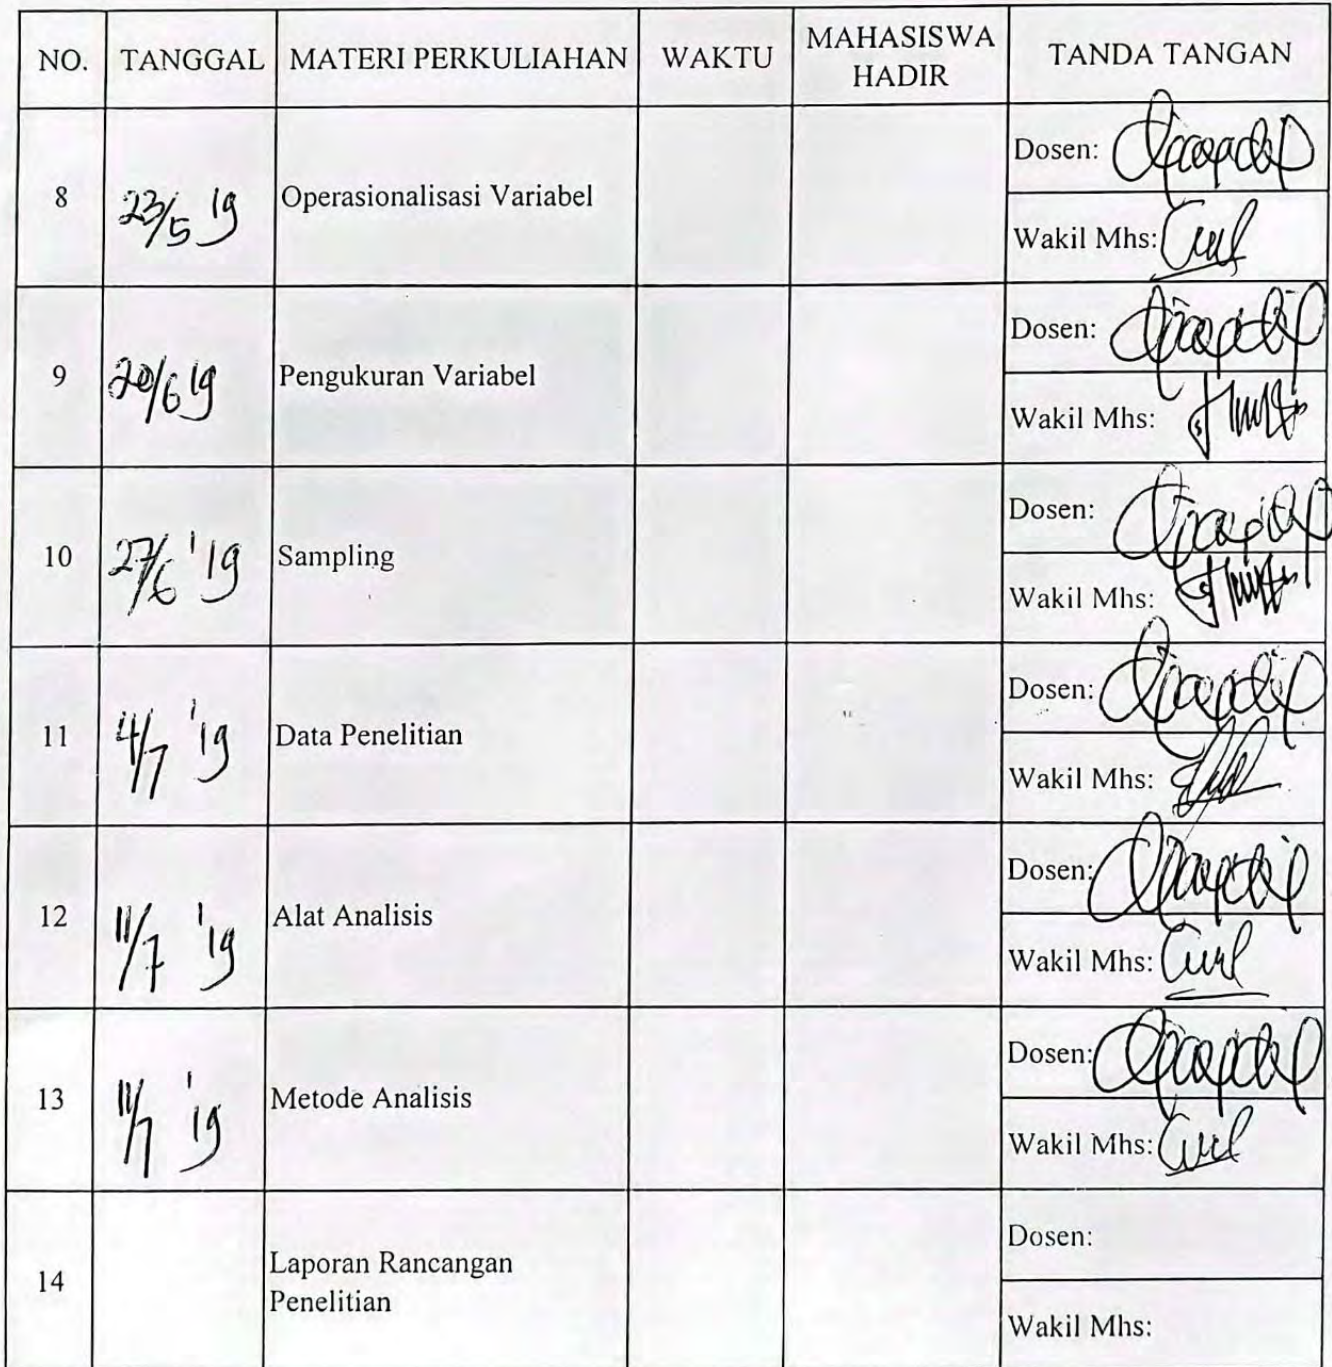 NO. TANGGAL MATERI PERKULIAHAN WAKTU MAHASISWA HADIR TANDA TANGAN
8 23/5 19 Operasionalisasi Variabel
Dosen:
Wakil Mhs:
9 20/6 19 Pengukuran Variabel
Dosen:
Wakil Mhs:
10 27/6 '19 Sampling
Dosen:
Wakil Mhs:
11 4/7 '19 Data Penelitian
Dosen:
Wakil Mhs:
12 11/7 '19 Alat Analisis
Dosen:
Wakil Mhs:
13 11/7 '19 Metode Analisis
Dosen:
Wakil Mhs:
14 Laporan Rancangan
Penelitian
Dosen:
Wakil Mhs: